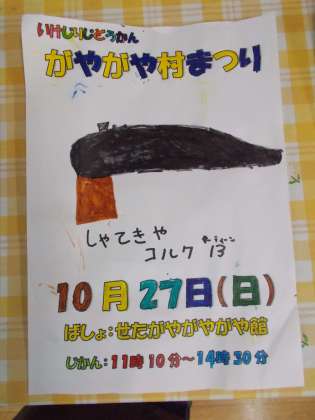 いけじりじどうかん
がやがや村まつり
しゃてきや
コルク 13
10月27日(日)
ばしょ:せたがやがやがや館
じかん:11時10分～14時30分